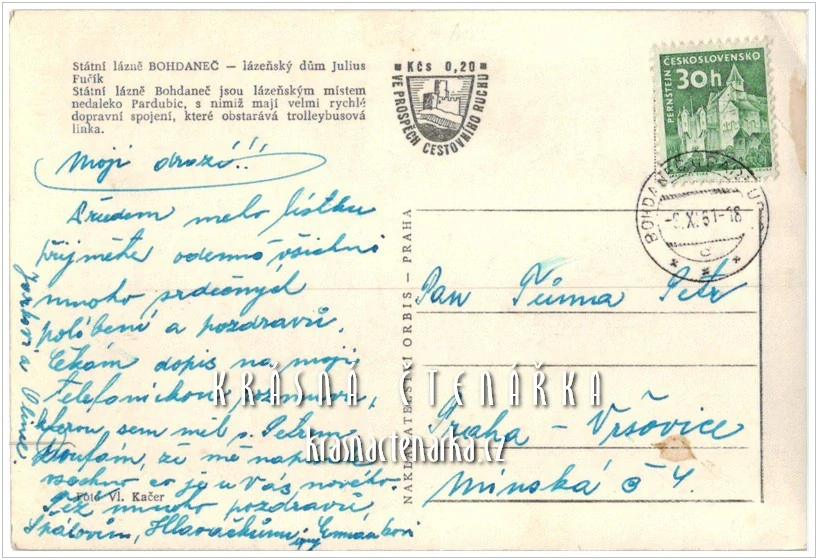 Státní lázně BOHDANEČ — lázeňský dům Julius
Fučík
Státní lázně Bohdaneč jsou lázeňským místem
nedaleko Pardubic, s nimiž mají velmi rychlé
dopravní spojení, které obstarává trolleybusová
linka.
Kčs 0,20
VE PROSPĚCH CESTOVNÍHO RUCHU
ČESKOSLOVENSKO
30h
PERNŠTEJN
BOHDANEČ
XI 61-18
c
Moji drazí!!
lístku
přijměte odemně všichni
mnoho srdečných
políbení a pozdravů.
Čekám dopis na moji
telefonickou rozmluvu,
kterou sem měl s. Petrem
Doufám, že mě napíšete
všechno co je u Vás nového.
Též mnoho pozdravů
Skálovům, Hlaváčkům
Foto Vl. Kačer
NAKLADATELSTVÍ ORBIS — PRAHA
Pan Tůma Petr
Praha - Vršovice
Minská č 4.
KRÁSNÁ ČTENÁŘKA
krasnactenarka.cz